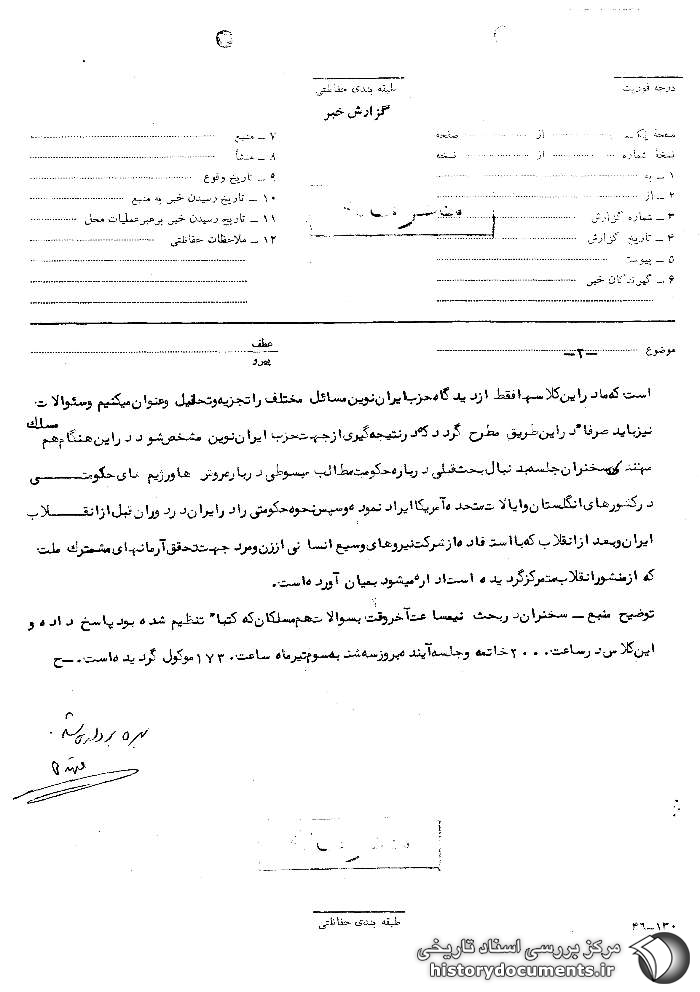 درجه فوریت
طبقه بندی حفاظتی
گزارش خبر
صفحه یک از صفحه
نسخهٔ شماره از نسخه
۱ ـ به
۲ ـ از
۳ ـ شماره گزارش
۴ ـ تاریخ گزارش
۵ ـ پیوست
۶ ـ گیرندگان خبر
۷ ـ منبع
۸ ـ منشأ
۹ ـ تاریخ وقوع
۱۰ ـ تاریخ رسیدن خبر به منبع
۱۱ ـ تاریخ رسیدن خبر برهبر عملیات محل
۱۲ ـ ملاحظات حفاظتی
موضوع ـ۲ـ
عطف
پیرو
است که مادر این کلاسها فقط از دیدگاه حزب ایران نوین مسائل مختلف را تجزیه و تحلیل و عنوان میکنیم و سئوالات
نیز باید صرفا" در این طریق مطرح گردد که در نتیجه گیری از جهت حزب ایران نوین مشخص شود در این هنگام هم مسلک
سخنران جلسه بدنبال بحث قبلی درباره حکومت مطالب مبسوطی درباره روش ها و رژیم های حکومتی
در کشورهای انگلستان و ایالات متحده آمریکا ایراد نموده و سپس نحوه حکومتی را در ایران در دوران قبل از انقلاب
ایران و بعد از انقلاب که با استفاده از شرکت نیروهای وسیع انسانی از زن و مرد جهت تحقق آرمانهای مشترک ملت
که از منشور انقلاب متمرکز گردیده است اداره میشود بمیان آورده است.
توضیح منبع ـ سخنران در بحث نیمساعت آخر وقت بسوالات هم مسلکان که کتبا" تنظیم شده بود پاسخ داده و
این کلاس در ساعت ۲۰۰۰ خاتمه و جلسه آینده بروز سه شنبه سوم تیرماه ساعت ۱۷۳۰ موکول گردیده است. ـ ح
بهره برداری شد.
طبقه بندی حفاظتی
۴۶ـ۱۳۰
مرکز بررسی اسناد تاریخی
historydocuments.ir